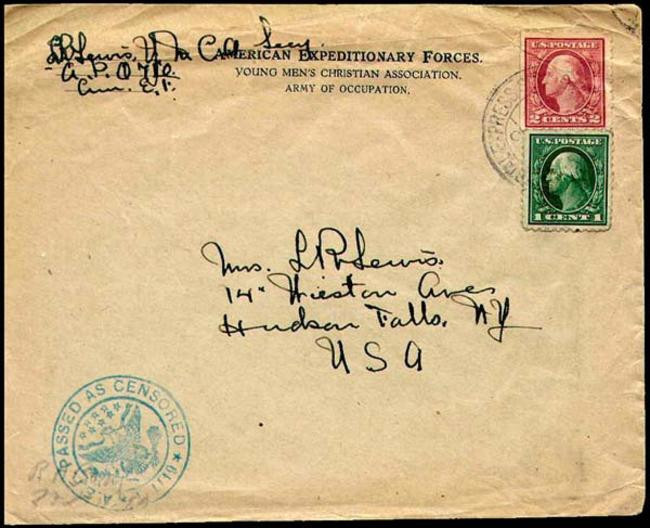 L R Lewis, Y M C A Secy.
A. P. O 710.
Am. E. F.
AMERICAN EXPEDITIONARY FORCES.
YOUNG MEN'S CHRISTIAN ASSOCIATION.
ARMY OF OCCUPATION.
U.S. POSTAGE
2 CENTS 2
U.S. POSTAGE
1 CENT 1
Mrs. L R Lewis.
14 Wieston Ave
Hudson Falls, NY
U S A
PASSED AS CENSORED
A.E.F.